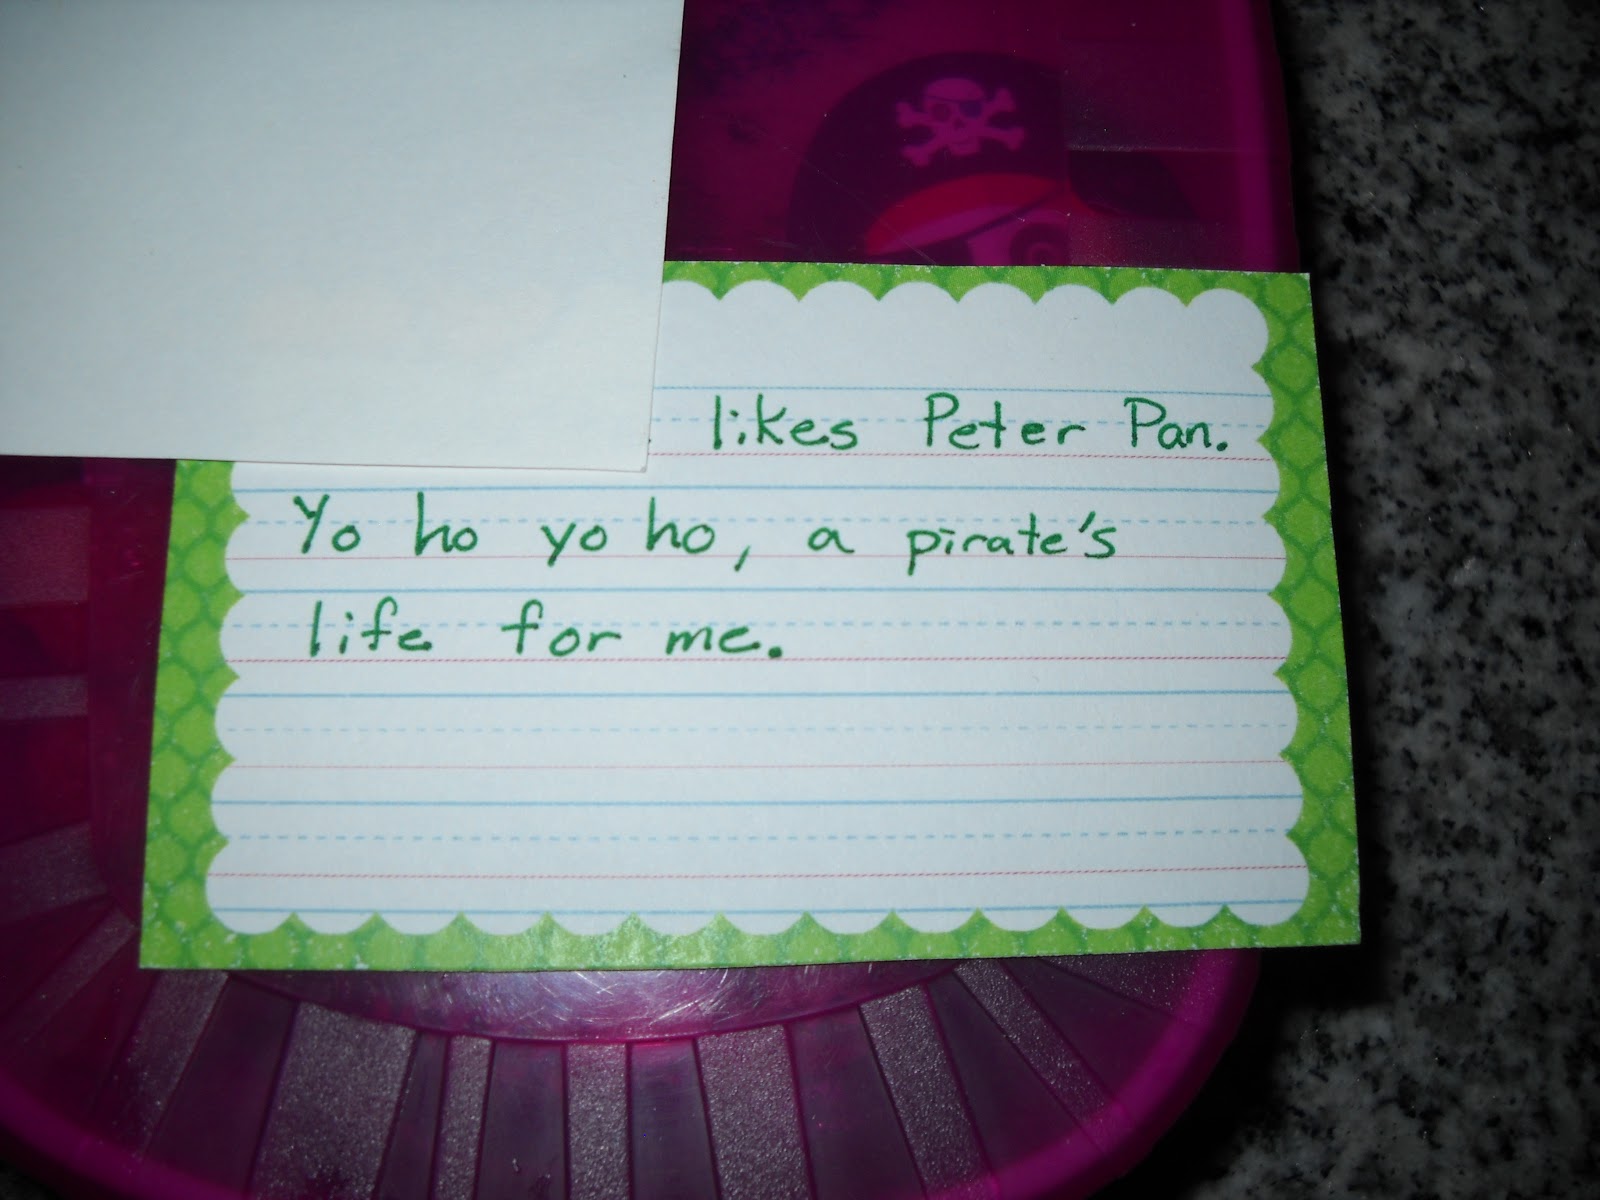 likes Peter Pan.
Yo ho yo ho, a pirate's
life for me.